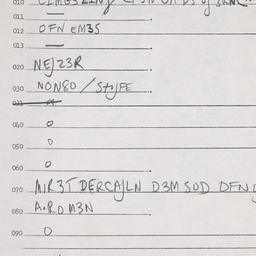 010
011
012 OFN EM3S
013
020 NEJZ3R
030 NON80 / STOJFE
031
040 0
050 0
060 0
070 MIR3T DERCAJLN D3M SOD OFN
080 A.RD M3N
090 0